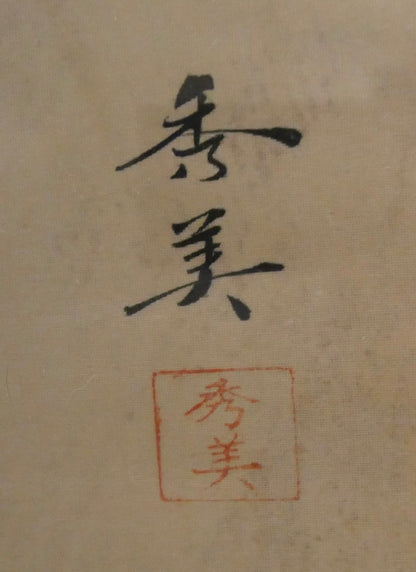 秀美
秀美